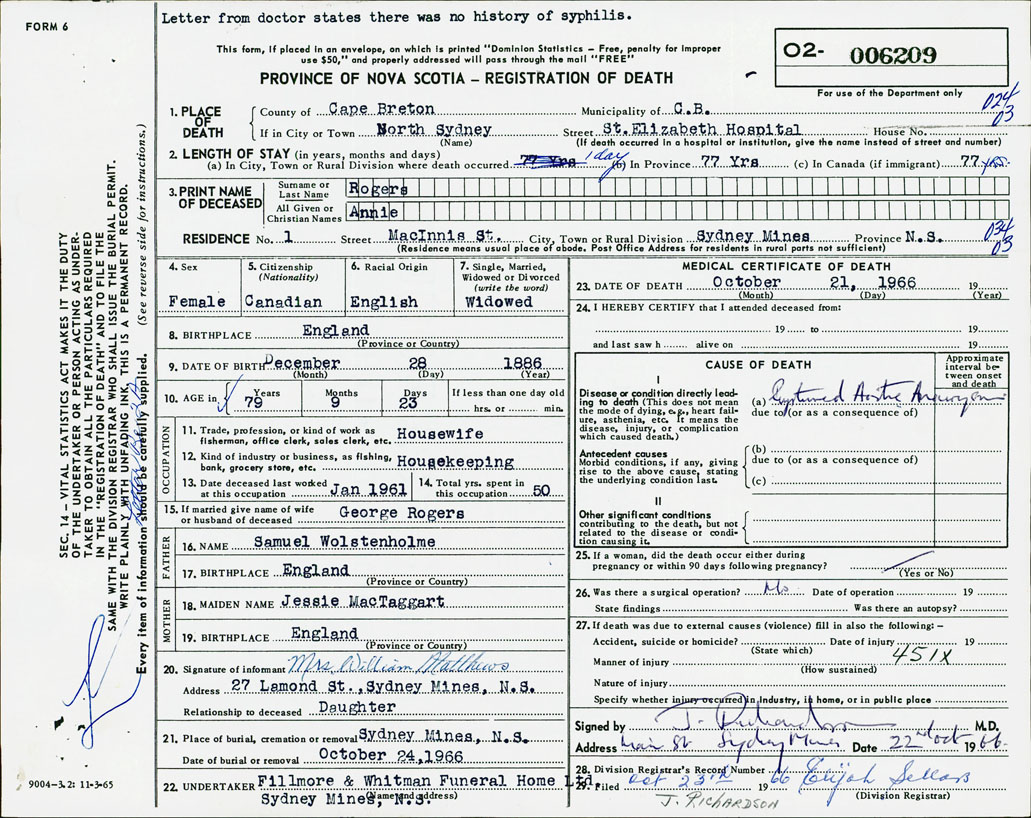 FORM 6
Letter from doctor states there was no history of syphilis.
This form, if placed in an envelope, on which is printed "Dominion Statistics – Free, penalty for improper
use $50," and properly addressed will pass through the mail "FREE"
PROVINCE OF NOVA SCOTIA – REGISTRATION OF DEATH
O2- 006209
For use of the Department only
024
03
1. PLACE OF DEATH
County of Cape Breton Municipality of C.B.
If in City or Town North Sydney Street St.Elizabeth Hospital House No.
(Name) (If death occurred in a hospital or institution, give the name instead of street and number)
2. LENGTH OF STAY (in years, months and days)
(a) In City, Town or Rural Division where death occurred 77 Yrs 1 day (b) In Province 77 Yrs (c) In Canada (if immigrant) 77 yrs.
3. PRINT NAME OF DECEASED
Surname or Last Name Rogers
All Given or Christian Names Annie
RESIDENCE No. 1 Street MacInnis St. City, Town or Rural Division Sydney Mines Province N.S.
(Residence means usual place of abode. Post Office Address for residents in rural parts not sufficient)
034
03
4. Sex
Female
5. Citizenship
(Nationality)
Canadian
6. Racial Origin
English
7. Single, Married,
Widowed or Divorced
(write the word)
Widowed
8. BIRTHPLACE England
(Province or Country)
9. DATE OF BIRTH December 28 1886
(Month) (Day) (Year)
10. AGE in Years Months Days If less than one day old
79 9 23 hrs. or min.
OCCUPATION
11. Trade, profession, or kind of work as
fisherman, office clerk, sales clerk, etc. Housewife
12. Kind of industry or business, as fishing,
bank, grocery store, etc. Housekeeping
13. Date deceased last worked
at this occupation Jan 1961
14. Total yrs. spent in
this occupation 50
15. If married give name of wife
or husband of deceased George Rogers
FATHER
16. NAME Samuel Wolstenholme
17. BIRTHPLACE England
(Province or Country)
MOTHER
18. MAIDEN NAME Jessie MacTaggart
19. BIRTHPLACE England
(Province or Country)
20. Signature of informant Mrs. William Matthews
Address 27 Lamond St.,Sydney Mines, N.S.
Relationship to deceased Daughter
21. Place of burial, cremation or removal Sydney Mines, N.S.
Date of burial or removal October 24,1966
22. UNDERTAKER Fillmore & Whitman Funeral Home Ltd.
(Name and address)
Sydney Mines, N.S.
MEDICAL CERTIFICATE OF DEATH
23. DATE OF DEATH October 21, 1966 19
(Month) (Day) (Year)
24. I HEREBY CERTIFY that I attended deceased from:
19 to 19
and last saw h alive on 19
CAUSE OF DEATH
Approximate
interval be-
tween onset
and death
I
Disease or condition directly lead-
ing to death (This does not mean
the mode of dying, e.g., heart fail-
ure, asthenia, etc. It means the
disease, injury, or complication
which caused death.)
(a) Ruptured Aortic Aneurysm
due to (or as a consequence of)
Antecedent causes
Morbid conditions, if any, giving
rise to the above cause, stating
the underlying condition last.
(b)
due to (or as a consequence of)
(c)
II
Other significant conditions
contributing to the death, but not
related to the disease or condi-
tion causing it.
25. If a woman, did the death occur either during
pregnancy or within 90 days following pregnancy?
(Yes or No)
26. Was there a surgical operation? No Date of operation 19
State findings Was there an autopsy?
27. If death was due to external causes (violence) fill in also the following: –
Accident, suicide or homicide? Date of injury 19
(State which)
451X
Manner of injury
(How sustained)
Nature of injury
Specify whether injury occurred in industry, in home, or in public place
Signed by J. Richardson M.D.
Address Main St Sydney Mines Date 22nd oct 1966.
28. Division Registrar's Record Number
29. Filed oct 23rd 19 66 Elijah Sellars
(Division Registrar)
J. RICHARDSON
9004-3.2: 11-3-65
SEC. 14 – VITAL STATISTICS ACT MAKES IT THE DUTY
OF THE UNDERTAKER OR PERSON ACTING AS UNDER-
TAKER TO OBTAIN ALL THE PARTICULARS REQUIRED
IN THE "REGISTRATION OF DEATH" AND TO FILE THE
SAME WITH THE DIVISION REGISTRAR WHO SHALL ISSUE THE BURIAL PERMIT.
WRITE PLAINLY WITH UNFADING INK. THIS IS A PERMANENT RECORD.
Every item of information should be carefully supplied. (See reverse side for instructions.)